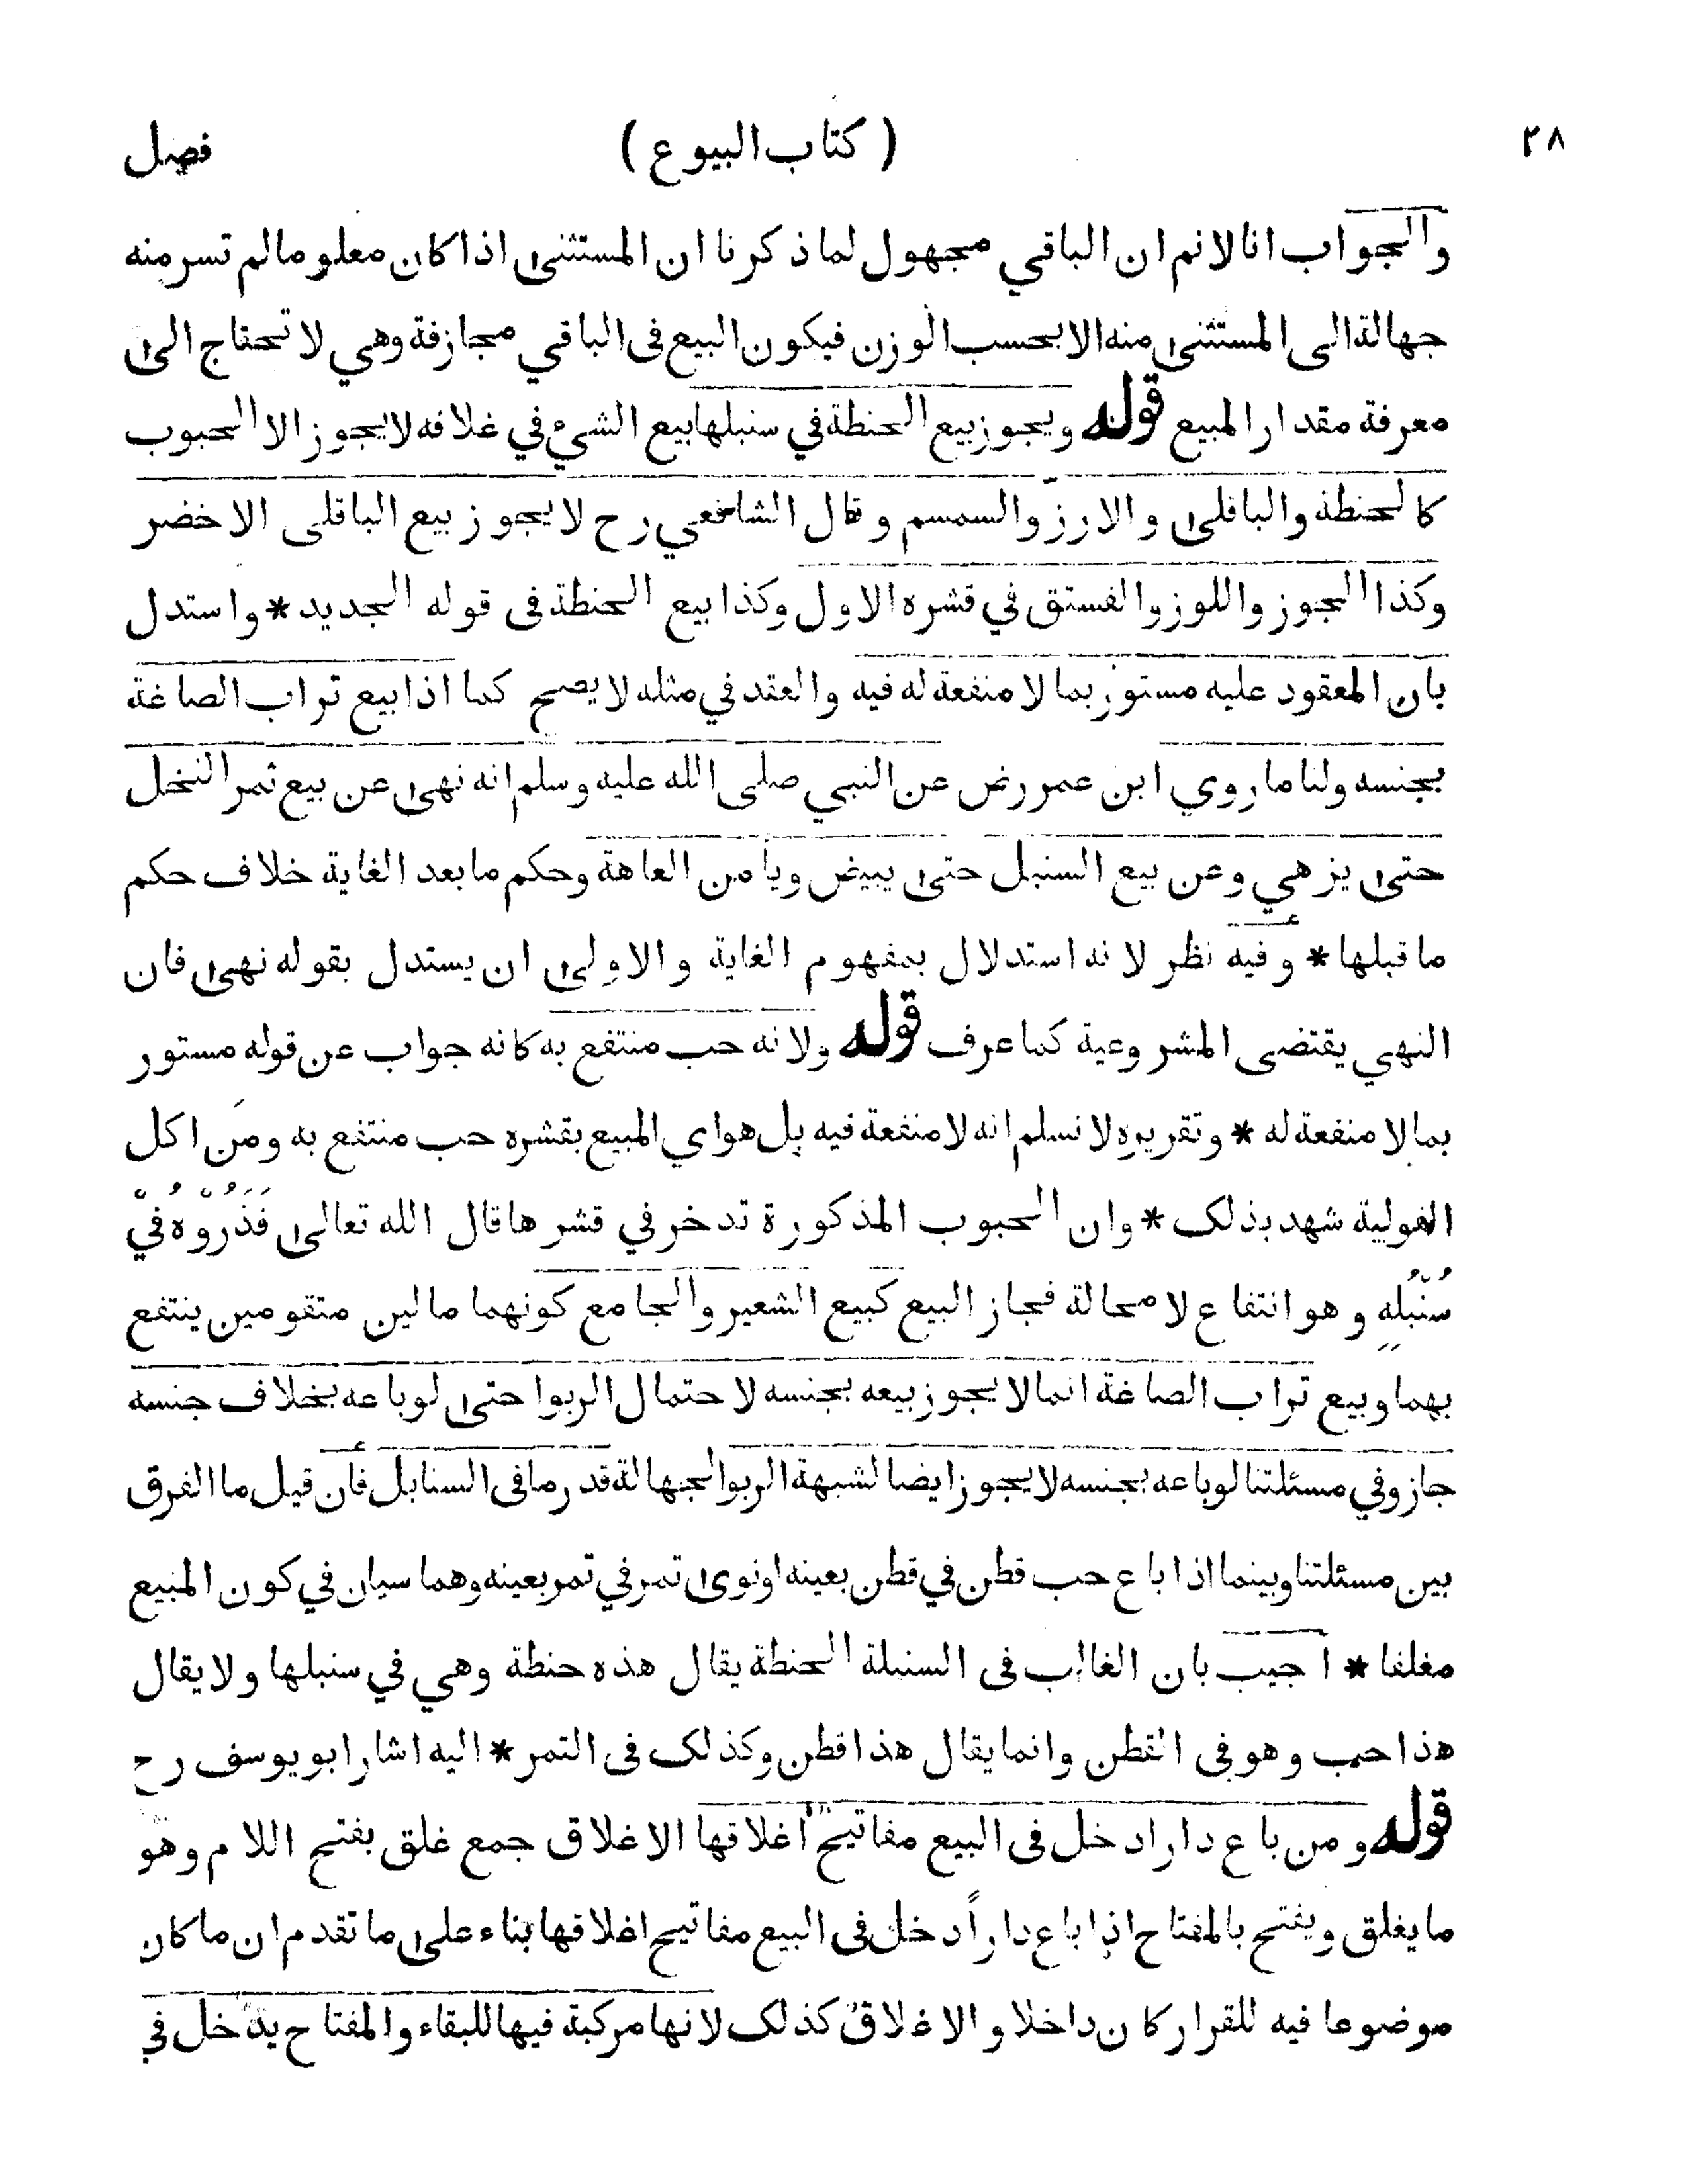 ٢٨ ( كتاب البيوع ) فصل
والجواب انا لا نم ان الباقي مجهول لما ذكرنا ان المستثنى اذا كان معلوما لم تسر منه
جهالة الى المستثنى منه الا بحسب الوزن فيكون البيع فى الباقي مجازفة وهي لا تحتاج الى
معرفة مقدار المبيع قوله ويجوز بيع الحنطة في سنبلها بيع الشيء في غلافه لا يجوز الا الحبوب
كالحنطة والباقلى والارزّ والسمسم وقال الشافعي رح لا يجوز بيع الباقلى الاخضر
وكذا الجوز واللوز والفستق في قشره الاول وكذا بيع الحنطة فى قوله الجديد * واستدل
بان المعقود عليه مستور بما لا منفعة له فيه والعقد في مثله لا يصح كما اذا بيع تراب الصاغة
بجنسه ولنا ما روي ابن عمر رض عن النبي صلى الله عليه وسلم انه نهى عن بيع ثمر النخل
حتى يزهي وعن بيع السنبل حتى يبيض ويأمن العاهة وحكم ما بعد الغاية خلاف حكم
ما قبلها * وفيه نظر لانه استدلال بمفهوم الغاية والاولى ان يستدل بقوله نهى فان
النهي يقتضى المشروعية كما عرف قوله ولانه حب منتفع به كانه جواب عن قوله مستور
بما لا منفعة له * وتقريره لا نسلم انه لا منفعة فيه بل هو اي المبيع بقشره حب منتفع به ومن اكل
الفولية شهد بذلک * وان الحبوب المذكورة تدخر في قشرها قال الله تعالى فَذَرُوْهُ فِيْ
سُنْبُلِهِ وهو انتفاع لا محالة فجاز البيع كبيع الشعير والجامع كونهما مالين متقومين ينتفع
بهما وبيع تراب الصاغة انما لا يجوز بيعه بجنسه لاحتمال الربوا حتى لو باعه بخلاف جنسه
جاز وفي مسئلتنا لو باعه بجنسه لا يجوز ايضا لشبهة الربوا لجهالة قدر ما فى السنابل فان قيل ما الفرق
بين مسئلتنا وبينما اذا باع حب قطن في قطن بعينه او نوى تمر في تمر بعينه وهما سيان في كون المبيع
مغلفا * اجيب بان الغالب فى السنبلة الحنطة يقال هذه حنطة وهي في سنبلها ولا يقال
هذا حب وهو فى القطن وانما يقال هذا قطن وكذلک فى التمر * اليه اشار ابو يوسف رح
قوله ومن باع دارا دخل فى البيع مفاتيح اغلاقها الاغلاق جمع غلق بفتح اللام وهو
ما يغلق ويفتح بالمفتاح اذا باع داراً دخل فى البيع مفاتيح اغلاقها بناء على ما تقدم ان ما كان
موضوعا فيه للقرار كان داخلا والاغلاق كذلک لانها مركبة فيها للبقاء والمفتاح يدخل في